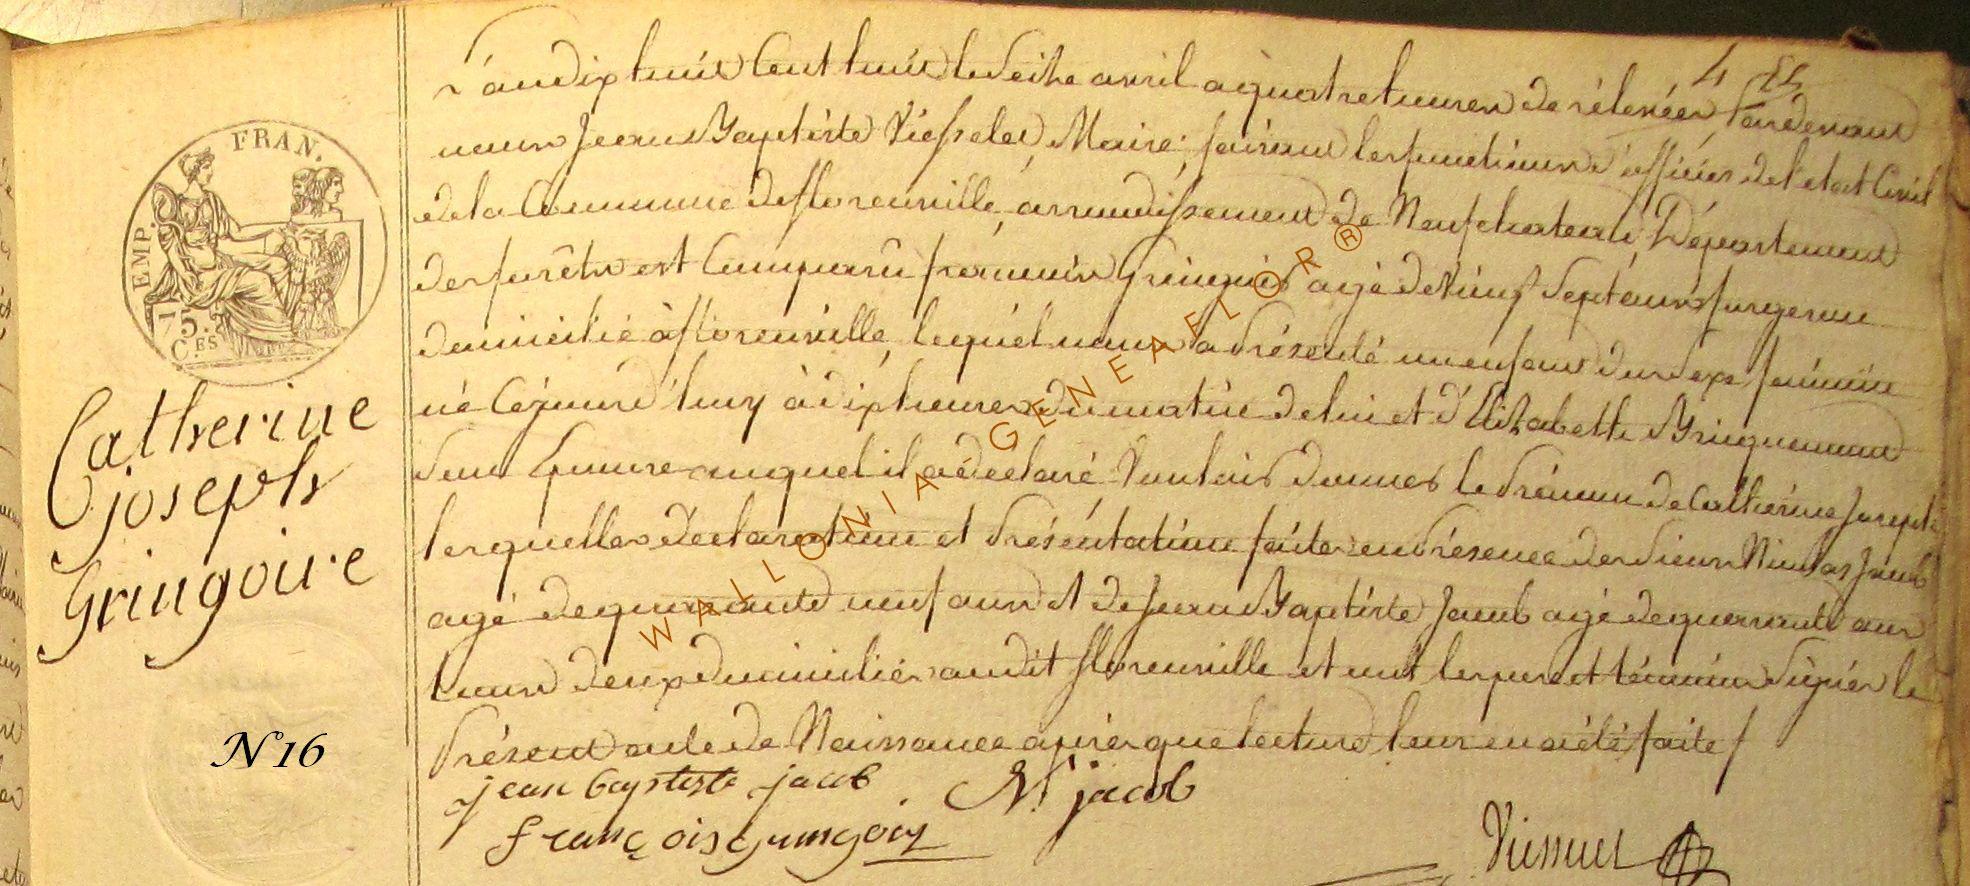 4
L'an dix huit cent huit le seize avril a quatre heures de relevée, Pardevant
nous Jean Baptiste Maire, faisant les fonctions d'officier de l'etat Civil
de la Commune de florenville, arrondissement de Neufchateau, Département
des forêts est Comparu françois Gringoir agé de vingt sept ans forgeron
domicilié à florenville, lequel nous a présenté un enfant du sexe féminin
né Cejourd'huy à dix heures du matin de lui et d'Elizabette Bringuemont
son Epouse auquel il a declaré Vouloir donner le Prénom de Catherine Joseph
lesquelles déclaration et Présentation faites en Présence des sieurs Nicolas Jacob
agé de quarante neuf ans et de Jean Baptiste Jacob agé de quarante ans
tous deux domiciliés audit florenville et ont les pere et témoins signés le
Présent acte de Naissance après que lecture leur en a été faite /
jean baptiste jacob N. jacob
françois gringoir
FRAN.
EMP.
75.
C.ES
Catherine
joseph
Gringoire
N 16
WALLONIA-GENEAFLOR®